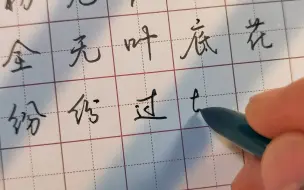 全无叶底花
纷纷过